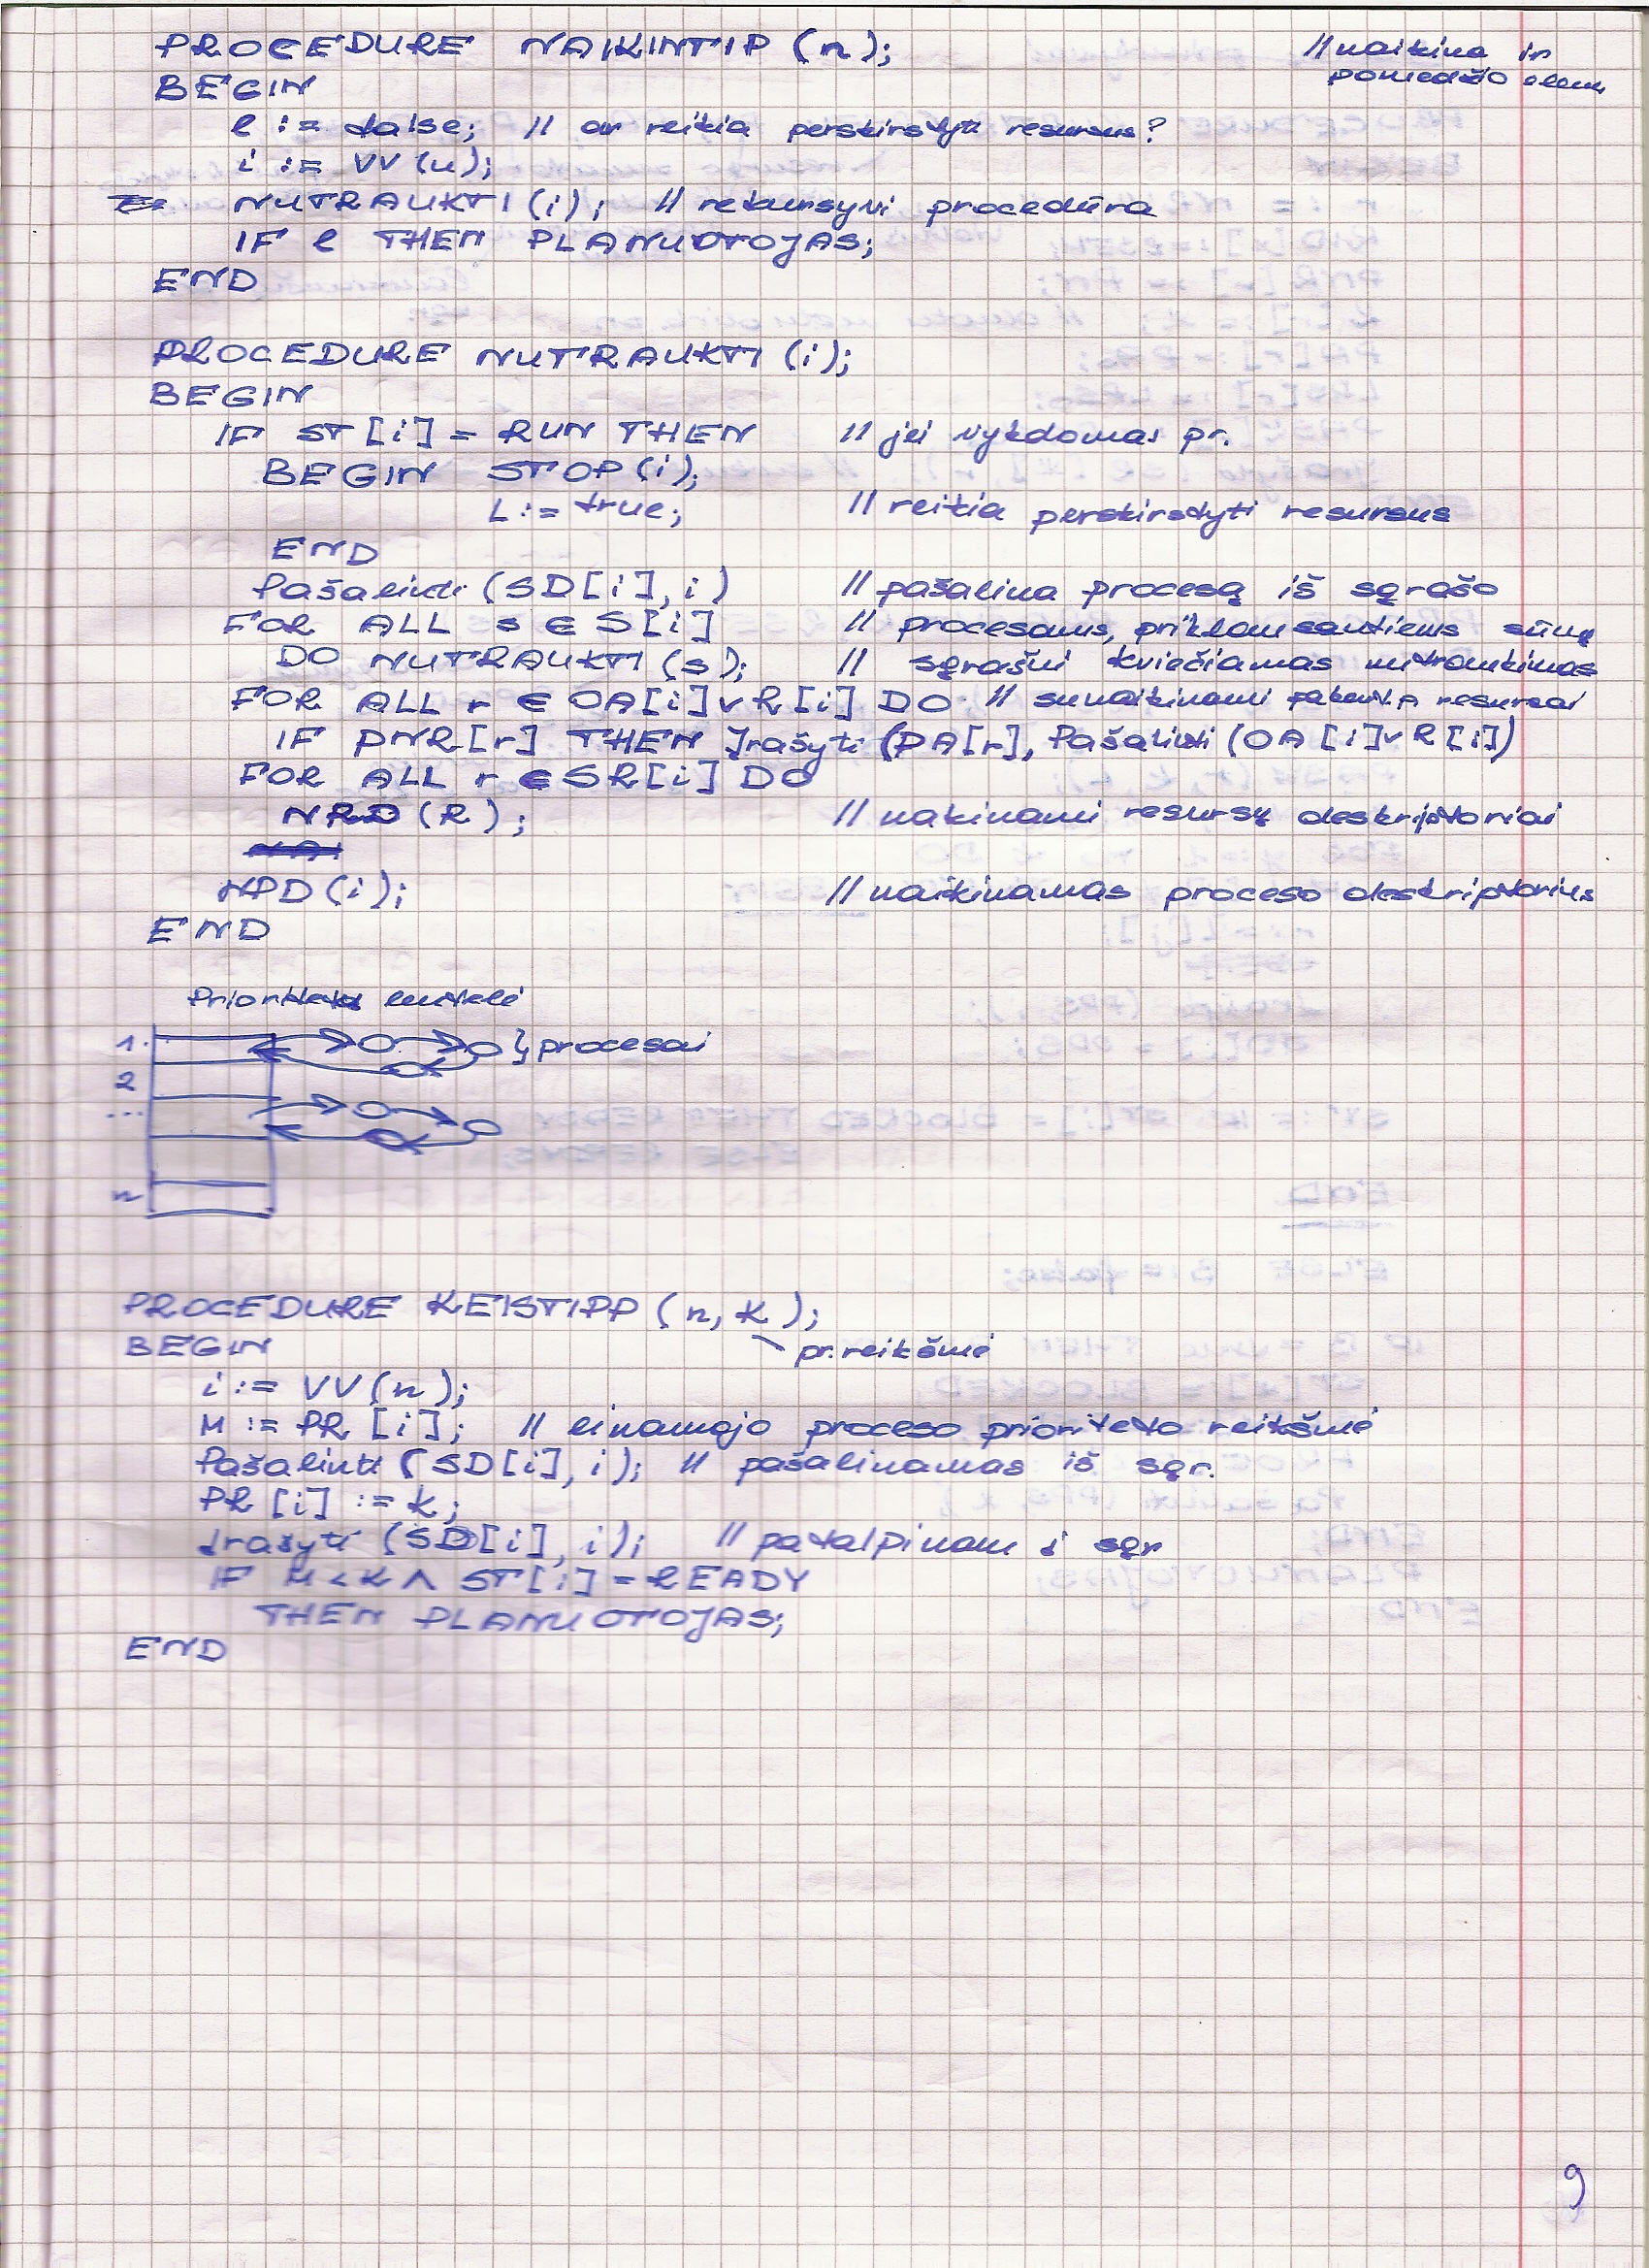 PROCEDURE NAIKINTIP (n); // naikina ir
pomedžio elem.
BEGIN
l := false; // ar reikia perskirstyti resursus?
i := VV (n);
NUTRAUKTI (i); // rekursyvi procedūra
IF l THEN PLANUOTOJAS;
END
PROCEDURE NUTRAUKTI (i);
BEGIN
IF ST [i] = RUN THEN // jei vykdomas pr.
BEGIN STOP (i);
L := true; // reikia perskirstyti resursus
END
Pašalinti (SD[i], i) // pašalina procesą iš sąrašo
FOR ALL s ∈ S[i] // procesams, priklausantiems sūnų
DO NUTRAUKTI (s); // sąrašui kviečiamas nutraukimas
FOR ALL r ∈ OA[i] v R[i] DO // sunaikinami resursai
IF PNR[r] THEN Įrašyti (PA[r], Pašalinti (OA [i] v R[i])
FOR ALL r ∈ SR[i] DO
NRD (R); // nakinami resursų deskriptoriai
NPD (i); // naikinamas proceso deskriptorius
END
Prioritetų lentelė
1. } procesai
2
...
n
PROCEDURE KEISTIPP (n, k);
BEGIN pr. reikšmė
i := VV (n);
M := PR [i]; // einamojo proceso prioriteto reikšmė
Pašalinti (SD[i], i); // pašalinamas iš sąr.
PR [i] := k;
Įrašyti (SD[i], i); // patalpinam į sąr
IF M < K ∧ ST [i] = READY
THEN PLANUOTOJAS;
END
9